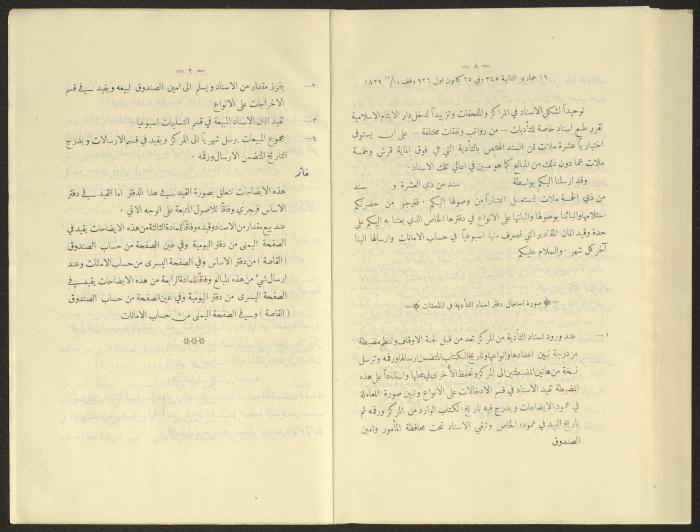 — ٨ —
١٩ جمادى الثانية ٣٤٥ وفي ٢٥ كانون اول ٩٢٦ وقف ١٨٣٩
توحيداً لشكل الاسناد في المراكز والملحقات وتزييداً لدخل دار الايتام الاسلامية
تقرر طبع اسناد خاصة للتأديات — من رواتب ونفقات مختلفة — على ان يستوفى
اختيارياً عشرة ملات ثمن السند المختص بالتأدية التي هي فوق المائة قرش وخمسة
ملات عما دون ذلك من المبالغ كما هو مبين في اعالي تلك الاسناد ٠
وقد ارسلنا اليكم بواسطة سند من ذي العشرة و سند
من ذي الخمسة ملات لتستعمل اعتباراً من وصولها اليكم ٠ فنرجو من حضرتكم
استلامها وانبائنا بوصولها واثباتها على الانواع في دفترها الخاص الذي بعثنا به اليكم على
حدة وقيد اثمان المقادير التي تصرف منها اسبوعياً في حساب الامانات وارسالها الينا
آخر كل شهر ٠ والسلام عليكم
صورة استعمال دفتر اسناد التأدية في الملحقات
١ — عند ورود اسناد التأدية من المركز تعد من قبل لجنة الاوقاف وتنظم مضبطة
مزدوجة تبين اعدادها وانواعها وتاريخ الكتاب المتضمن ارسالها ورقمه وترسل
نسخة من هاتين المضبطتين الى المركز وتحفظ الأخرى في محلها واستناداً على هذه
المضبطة تقيد الاسناد في قسم الادخالات على الانواع وتبين صورة المعاملة
في عمود الايضاحات ويدرج فيه تاريخ الكتاب الوارد من المركز ورقمه ثم
تاريخ القيد في عموده الخاص وتبقى الاسناد تحت محافظة المأمور وامين
الصندوق
— ٩ —
٢ — يفرز مقدار من الاسناد ويسلم الى امين الصندوق لبيعه ويقيد في قسم
الاخراجات على الانواع
٣ — تقيد اثمان الاسناد المبيعة في قسم التسليمات اسبوعياً ٠
٤ — مجموع المبيعات يرسل شهرياً الى المركز ويقيد في قسم الارسالات ويدرج
التاريخ المتضمن الارسال ورقمه ٠
خاتمه
هذه الايضاحات تتعلق بصورة القيد في هذا الدفتر اما القيد في دفتر
الاساس فيجري وفاقاً للاصول المتبعة على الوجه الاتي ٠
عند بيع مقدار من الاسناد وقيده وفاقاً للمادة الثالثة من هذه الايضاحات يقيد في
الصفحة اليمنى من دفتر اليومية وفي عين الصفحة من حساب الصندوق
(القاصة) من دفتر الاساس وفي الصفحة اليسرى من حساب الامانات وعند
ارسال شيء من هذه المبالغ وفاقاً للمادة الرابعة من هذه الايضاحات يقيد في
الصفحة اليسرى من دفتر اليومية وفي عين الصفحة من حساب الصندوق
(القاصة) وفي الصفحة اليمنى من حساب الامانات